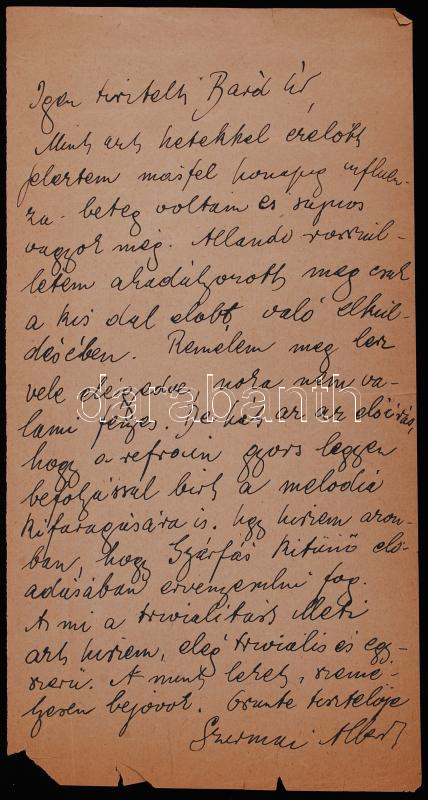 Igen tisztelt Bárd Úr,
Mint azt hetekkel ezelőtt
jeleztem másfél hónapig influen-
za-beteg voltam és súlyos
vagyok még. Állandó rosszul-
létem akadályozott meg csak
a kis dal előbb való elkül-
désében. Remélem meg lesz
vele elégedve, noha nem va-
lami fényes. De hát az az előírás,
hogy a refrain gyors legyen
befolyással birt a melódia
kifaragására is. Úgy hiszem azon-
ban, hogy Gyárfás kitünő elő-
adásában érvényesülni fog.
A mi a trivialitást illeti
azt hiszem, elég triviális és egy-
szerű. A mint lehet, szemé-
lyesen bejövök. Őszinte tisztelője
Szirmai Albert
darabanth